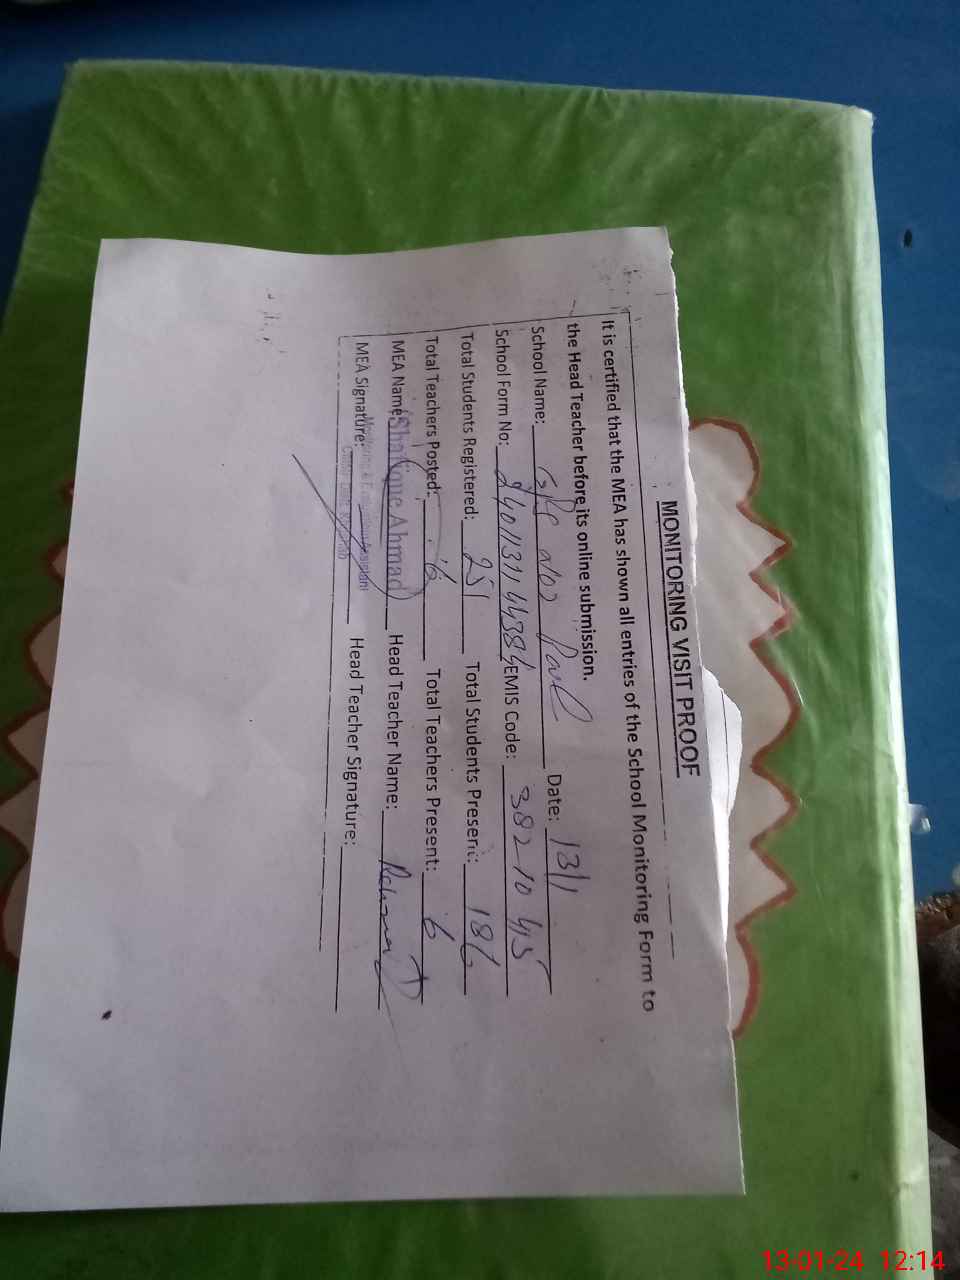 MONITORING VISIT PROOF
It is certified that the MEA has shown all entries of the School Monitoring Form to
the Head Teacher before its online submission.
School Name: Date: 13/1
School Form No: EMIS Code: 38210415
Total Students Registered: 251 Total Students Present: 186
Total Teachers Posted: 6 Total Teachers Present: 6
MEA Name: Shafique Ahmad Head Teacher Name:
MEA Signature: Head Teacher Signature:
Monitoring & Evaluation Assistant
13-01-24 12:14